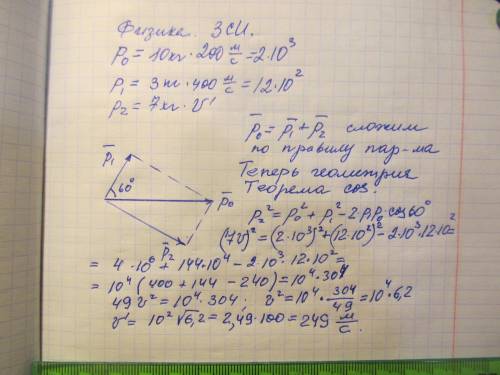 Физика. ЗСИ.
P₀ = 10кг · 200 м/с = 2·10³
P₁ = 3 кг · 400 м/с = 12·10²
P₂ = 7кг · v'
p̅₀ = p̅₁ + p̅₂ сложим
по правилу пар-ма
Теперь геометрия
Теорема cos.
p̅₁
60°
p̅₀
p̅₂
P₂² = P₀² + P₁² - 2·P₁P₀·cos60°
(7v)² = (2·10³)² + (12·10²)² - 2·10³·12·10² =
= 4·10⁶ + 144·10⁴ - 2·10³·12·10² =
= 10⁴(400 + 144 - 240) = 10⁴·304
49 v² = 10⁴·304; v² = 10⁴ · 304/49 = 10⁴·6,2
v' = 10²√6,2 = 2,49·100 = 249 м/с.